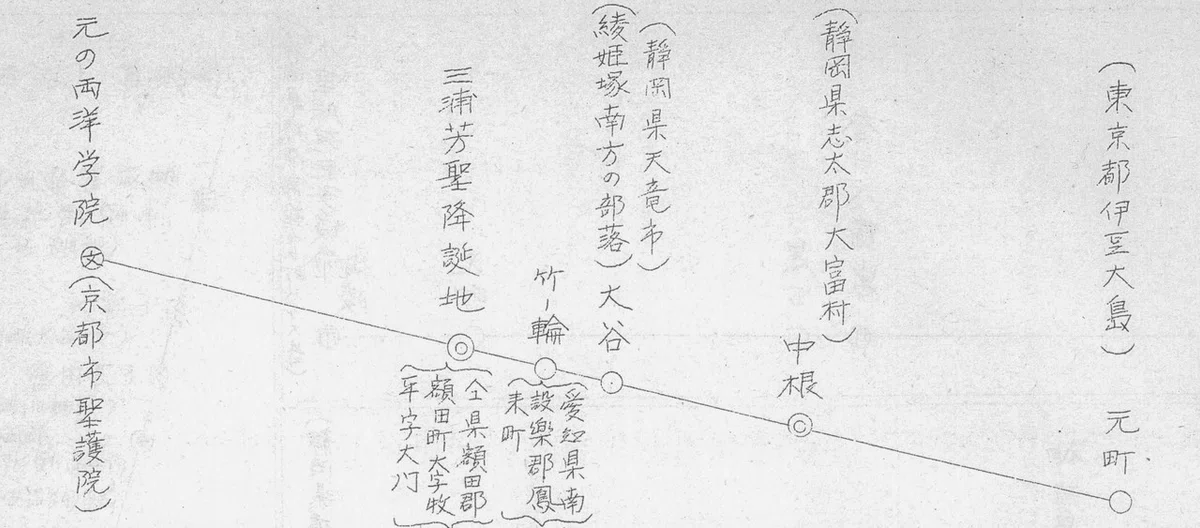 (東京都伊豆大島)
元町
(静岡県志太郡大富村)
中根
(静岡県天竜市)
(綾姫塚南方の部落)大谷
竹ノ輪
(愛知県南
設楽郡鳳
来町
三浦芳聖降誕地
(仝県額田郡
額田町大字牧
平字大門
元の両洋学院
文
(京都市聖護院)